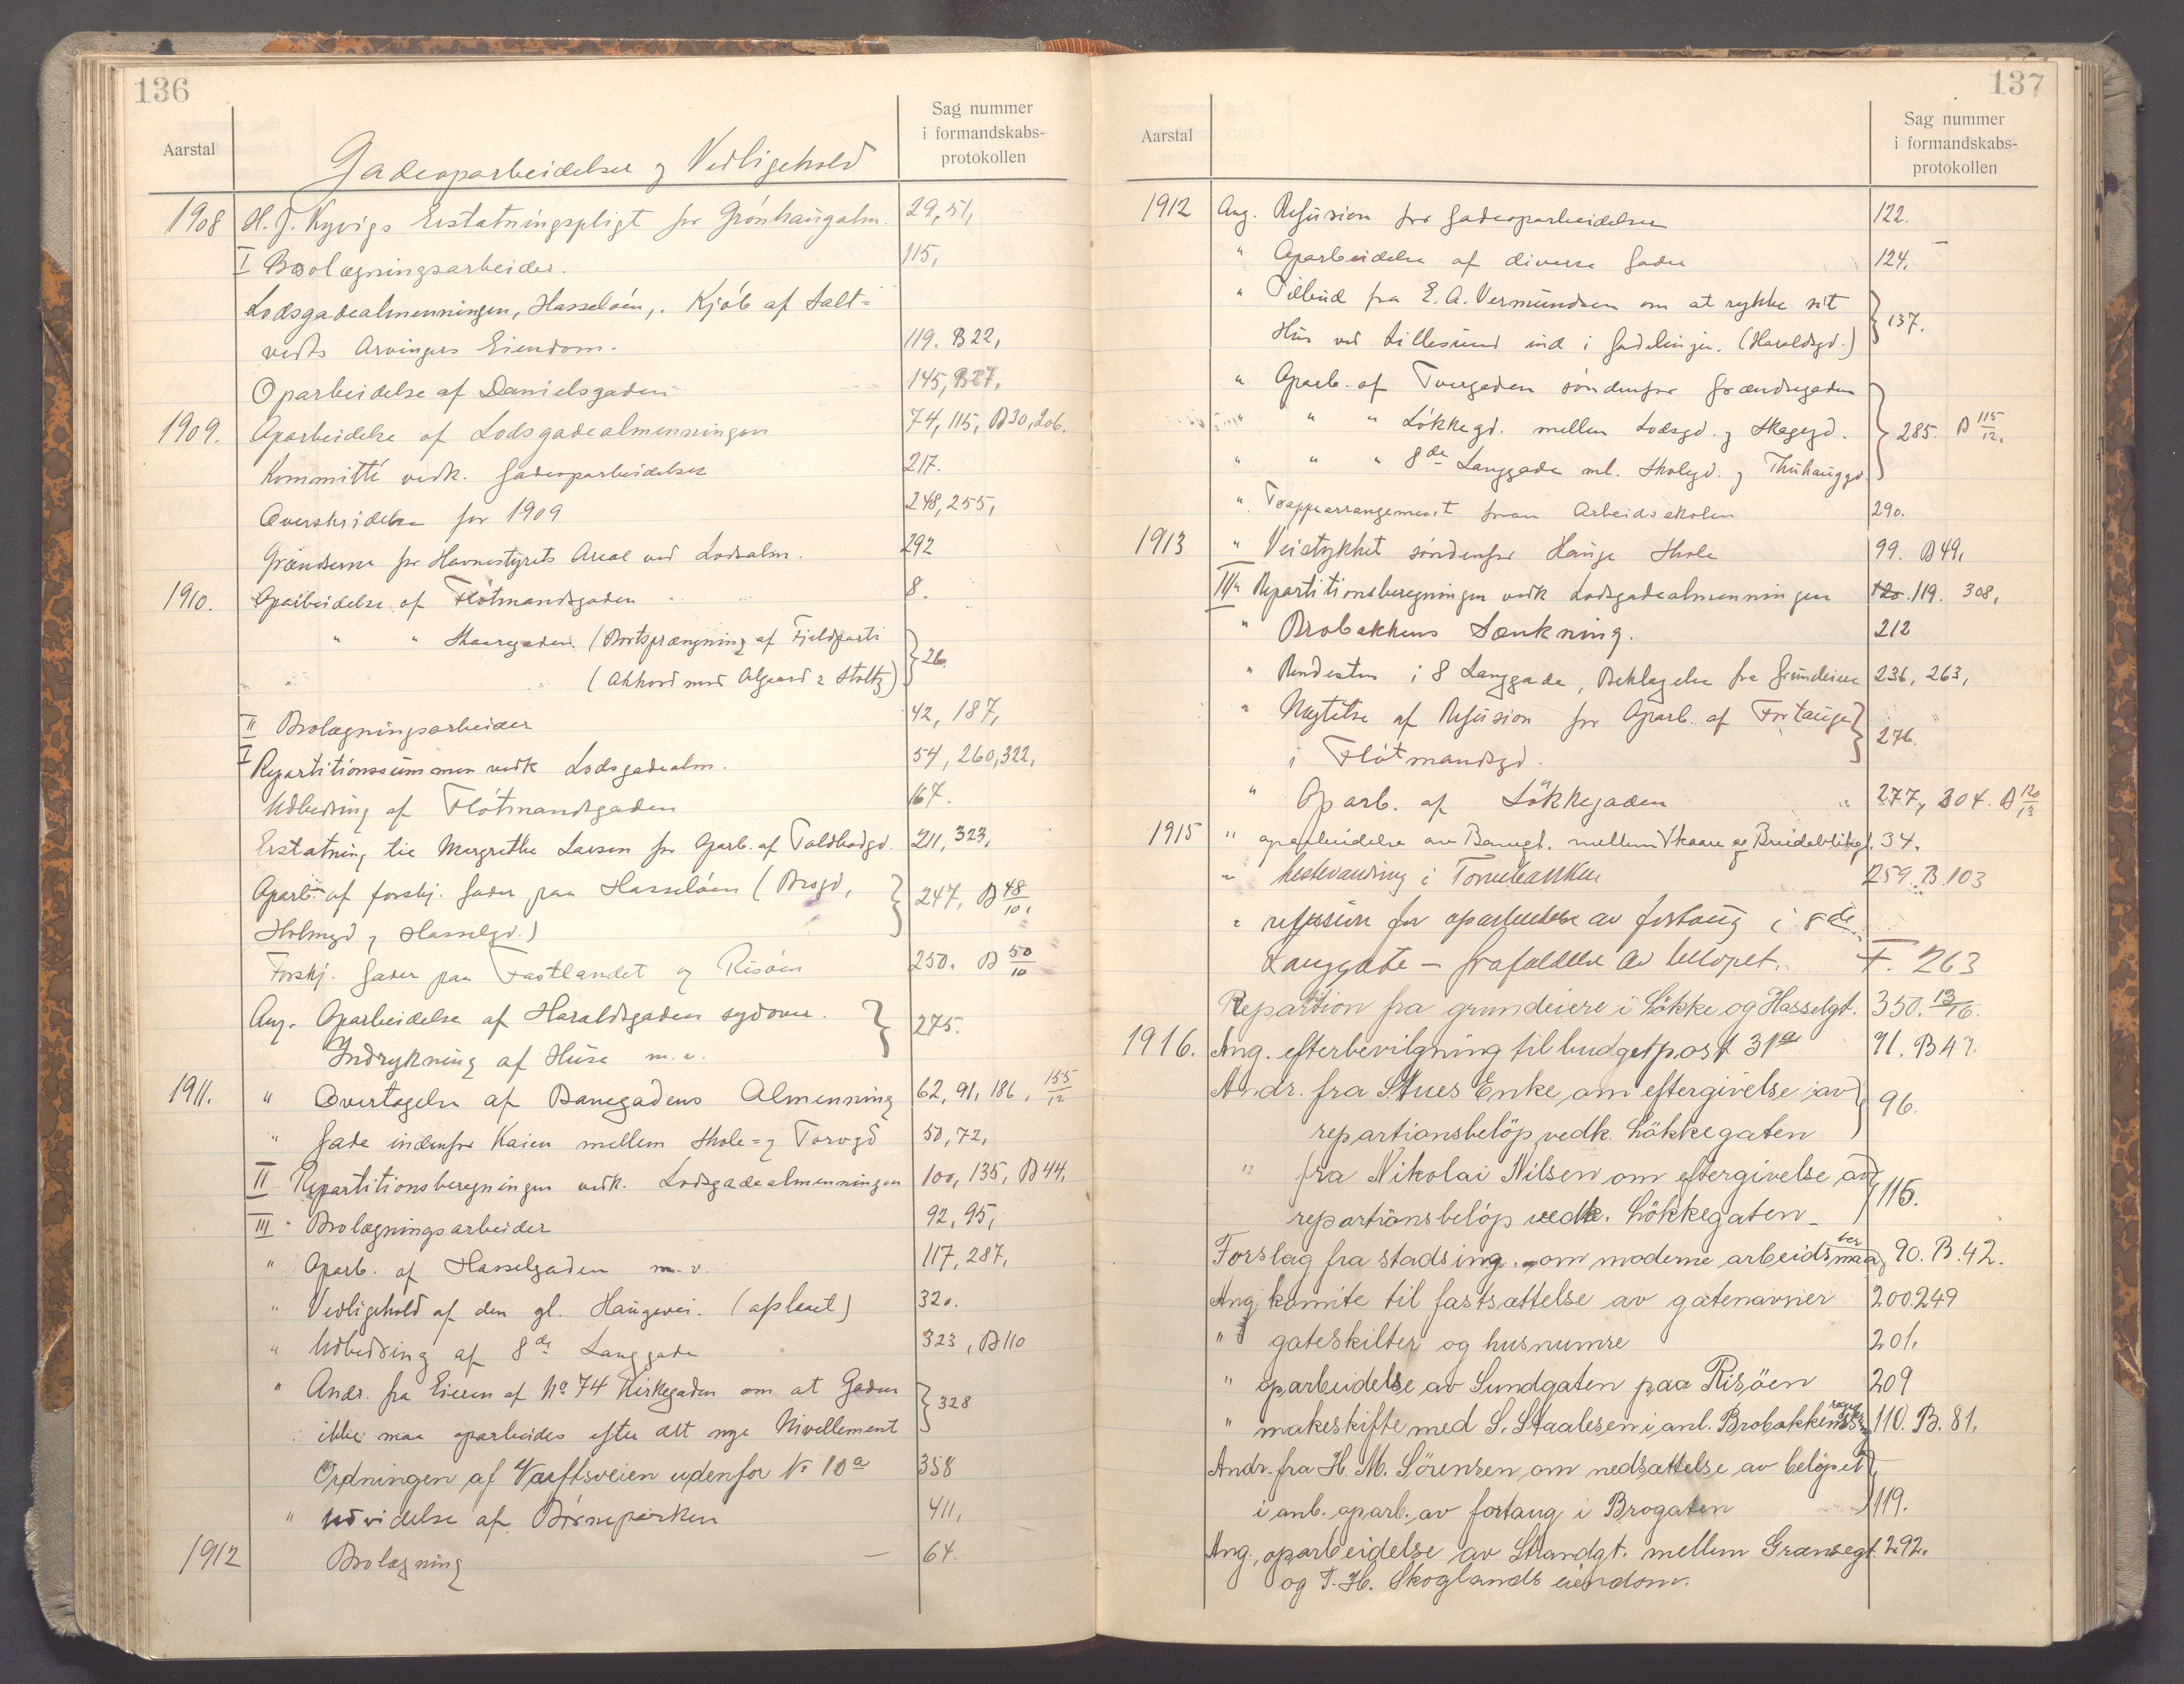 136
Aarstal
Gadeoparbeidelser og Vedligehold
Sag nummer
i formandskabs-
protokollen
1908 H. J. Kyvigs Erstatningspligt for Grönhaugalm. 29, 51,
I Brolægningsarbeider. 115,
Lodsgadealmenningen, Hasseløen, Kjöb af Salt-
vedts Arvingers Eiendom. 119. B 22,
Oparbeidelse af Danielsgaden 145, B 27,
1909. Oparbeidelse af Lodsgadealmenningen 74, 115, B 30, 206.
Kommitté vedk. Gadeoparbeidelser 217.
Overskridelse for 1909 248, 255,
Grændserne for Havnestyrets Areal ved Lodsalm. 292
1910. Oparbeidelse af Flötmandsgaden 8.
" " Skaaregaden (Bortsprængning af Fjeldparti
(Akkord med Algaard & Stoltz) } 26.
II Brolægningsarbeider 42, 187,
I Repartitionssummen vedk Lodsgadealm. 54, 260, 322,
Udbedring af Flötmandsgaden 167.
Erstatning til Margrethe Larsen for Oparb. af Toldbodgd. 211, 323,
Oparb. af forskj. Gader paa Hasselöen (Brogd,
Holmegd og Hasselgd.) } 247, B 48/10,
Forskj. Gader paa Fastlandet og Risöen 250. B 50/10
Ang. Oparbeidelse af Haraldsgaden sydover.
Indrykning af Huse m. v. } 275.
1911. " Overtagelse af Banegadens Almenning 62, 91, 186, 155/12
" Gade indenfor Kaien mellem Skole- og Torvgd 50, 72,
II Repartitionsberegningen vedk. Lodsgadealmenningen 100, 135, B 44,
III " Brolægningsarbeider 92, 95,
" Oparb. af Hasselgaden m. v. 117, 287,
" Vedligehold af den gl. Haugevei. (aplaset) 320.
" Udbedring af 8de Langgade 323, B 110
" Andr. fra Eieren af No 74 Kirkegaden om at Gaden
ikke maa oparbeides efter det nye Nivellement } 328
Ordningen af Værftsveien udenfor No 10a 358
" Udvidelse af Börneparken 411,
1912 Brolægning — 64.
137
Aarstal
Sag nummer
i formandskabs-
protokollen
1912 Ang. Refusion for Gadeoparbeidelser 122.
" Oparbeidelse af diverse Gader 124.
" Tilbud fra E. A. Vermundsen om at rykke sit
Hus ved Lillesund ind i Gadelinjen. (Haraldsgd.) } 137.
" Oparb. af Tvergaden söndenfor Grændsegaden
" " " Lökkegd. mellem Lodsgd. og Skeggegd. } 285. B 115/12,
" " " 8de Langgade ml. Skolegd. og Thuhauggd.
" Trappearrangement foran Arbeidsskolen 290.
1913 " Veistykket söndenfor Hauge Skole 99. B 49,
III " Repartitionsberegningen vedk Lodsgadealmenningen 120. 119. 308,
" Brobakkens Sænkning. 212
" Rendesten i 8 Langgade, Beklagelse fra Grundeiere 236, 263,
" Nægtelse af Refusion for Oparb. af Fortauge
i Flötmandsgd. } 276.
" Oparb. af Lökkegaden " 277, 304. B 120/13
1915 " oparbeidelse av Banegt. mellem Skaare og Breidablikgt. 34.
" hestevanding i Tornebakken 259. B. 103
" refusion for oparbeidelse av fortaug i 8de
Langgate — frafaldelse av belöpet. F. 263
Repartition fra grundeiere i Lökke og Hasselgt. 350. 13/16.
1916. Ang. efterbevilgning til budgetpost 31a 91. B 47.
Andr. fra Stues Enke om eftergivelse av
repartionsbelöp vedk. Lökkegaten } 96.
" fra Nikolai Nilsen om eftergivelse av
repartionsbelöp vedk. Lökkegaten } 115.
Forslag fra stadsing. om moderne arbeidsmaaber 90. B. 42.
Ang. komite til fastsættelse av gatenavner 200 249
" gateskilter og husnumre 201.
" oparbeidelse av Sundgaten paa Risöen 209
" makeskifte med S. Staalesen i anl. Brobakkens 110. B. 81.
Andr. fra H. M. Sörensen om nedsættelse av belöpet
i anl. oparb. av fortaug i Brogaten } 119.
Ang. oparbeidelse av Strandgt. mellem Grænsegt. 292.
og T. H. Skoglands eiendom.